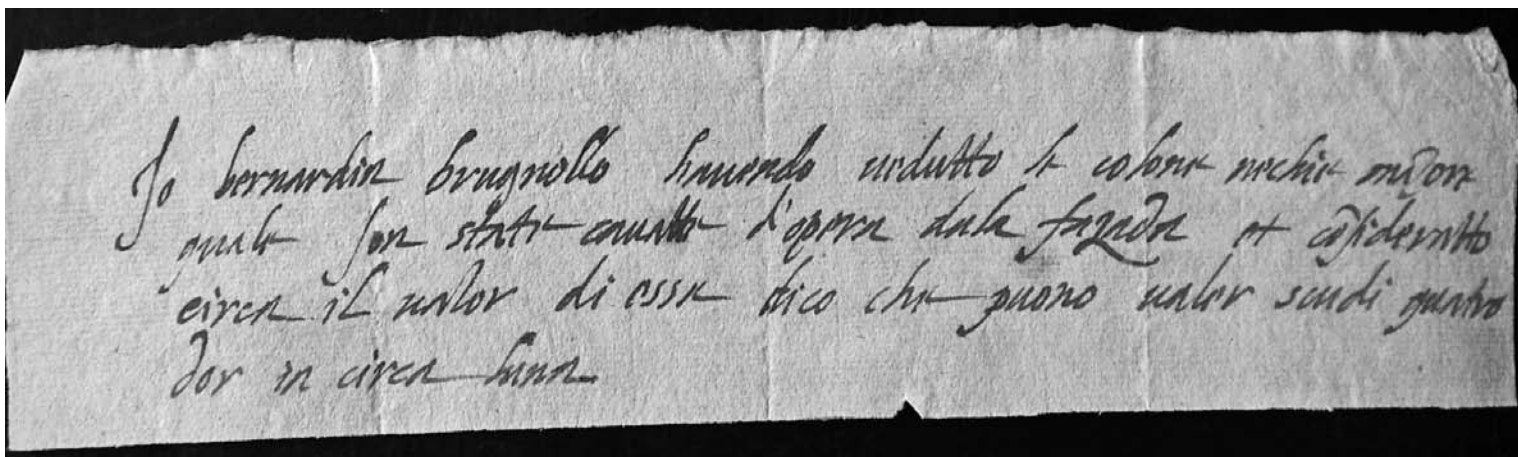 Io bernardin brugnollo hauendo uedutto le colone uechie
quale son state cauatte d'opera dala fazada et cõsideratto
circa il ualor di esse dico che puono ualer scudi quatro
dor in circa luna